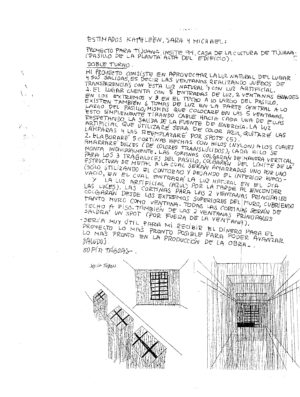 ESTIMADOS KATHLEEN, SARA Y MICHAEL:
PROYECTO PARA TIJUANA INSITE 94. CASA DE LA CULTURA DE TIJUANA.
(PASILLO DE LA PLANTA ALTA DEL EDIFICIO).
DOBLE TURNO.
MI PROYECTO CONSISTE EN APROVECHAR LA LUZ NATURAL DEL LUGAR
Y SUS SALIDAS, ES DECIR LAS VENTANAS REALIZANDO JUEGOS DE
TRANSPARENCIAS CON ESTA LUZ NATURAL Y CON LUZ ARTIFICIAL.
EL LUGAR CUENTA CON ENTRADAS DE LUZ, 2 VENTANAS GRANDES
EN LOS EXTREMOS Y EN EL TECHO A LO LARGO DEL PASILLO,
EXISTEN TAMBIEN TOMAS DE LUZ EN LA PARTE CENTRAL A LO
LARGO DEL PASILLO, MISMAS QUE COLOCARE EN LAS 5 VENTANAS,
ESTO SIMPLEMENTE TIRANDO CABLE HACIA CADA UNA DE ELLAS
RESPETANDO LA SALIDA DE LA FUENTE DE ENERGIA. LA LUZ
ARTIFICIAL QUE UTILIZARE SERA DE COLOR AZUL, QUITARE LAS
LAMPARAS Y LAS REEMPLAZARE POR SPOTS (5).
ELABORARE 5 CORTINAS HECHAS CON HILOS (NYLON) A LOS CUALES
AMARRARE DULCES (DE COLORES TRANSLUCIDOS), CADA HILO SE
MONTA INDIVIDUALMENTE. LAS CORTINAS COLGARAN DE MANERA VERTICAL
PARA LOS 3 TRAGALUCES DEL PASILLO, COLGARAN DEL LIMITE DE LA
ESTRUCTURA DE METAL A LA CUAL SERAN AMARRADOS UNO POR UNO
(SOLO UTILIZANDO EL CONTORNO Y DEJANDO EL INTERIOR
VACIO, EN EL CUAL ENTRARA LA LUZ NATURAL EN EL DIA
Y LA LUZ ARTIFICIAL (AZUL) POR LA TARDE AL ENCENDER
LAS LUCES). LAS CORTINAS PARA LAS 2 VENTANAS PRINCIPALES
COLGARAN DESDE LOS EXTREMOS SUPERIORES DEL MURO, CUBRIENDO
TANTO MURO COMO VENTANA. TODAS LAS CORTINAS SERAN DE
TECHO A PISO. TAMBIEN DE LAS 2 VENTANAS PRINCIPALES
SALDRA UN SPOT (POR FUERA DE LA VENTANA).
SERIA MUY UTIL PARA MI RECIBIR EL DINERO PARA EL
PROYECTO LO MAS PRONTO POSIBLE PARA PODER AVANZAR
LO MAS PRONTO EN LA PRODUCCION DE LA OBRA.
SALUDOS!